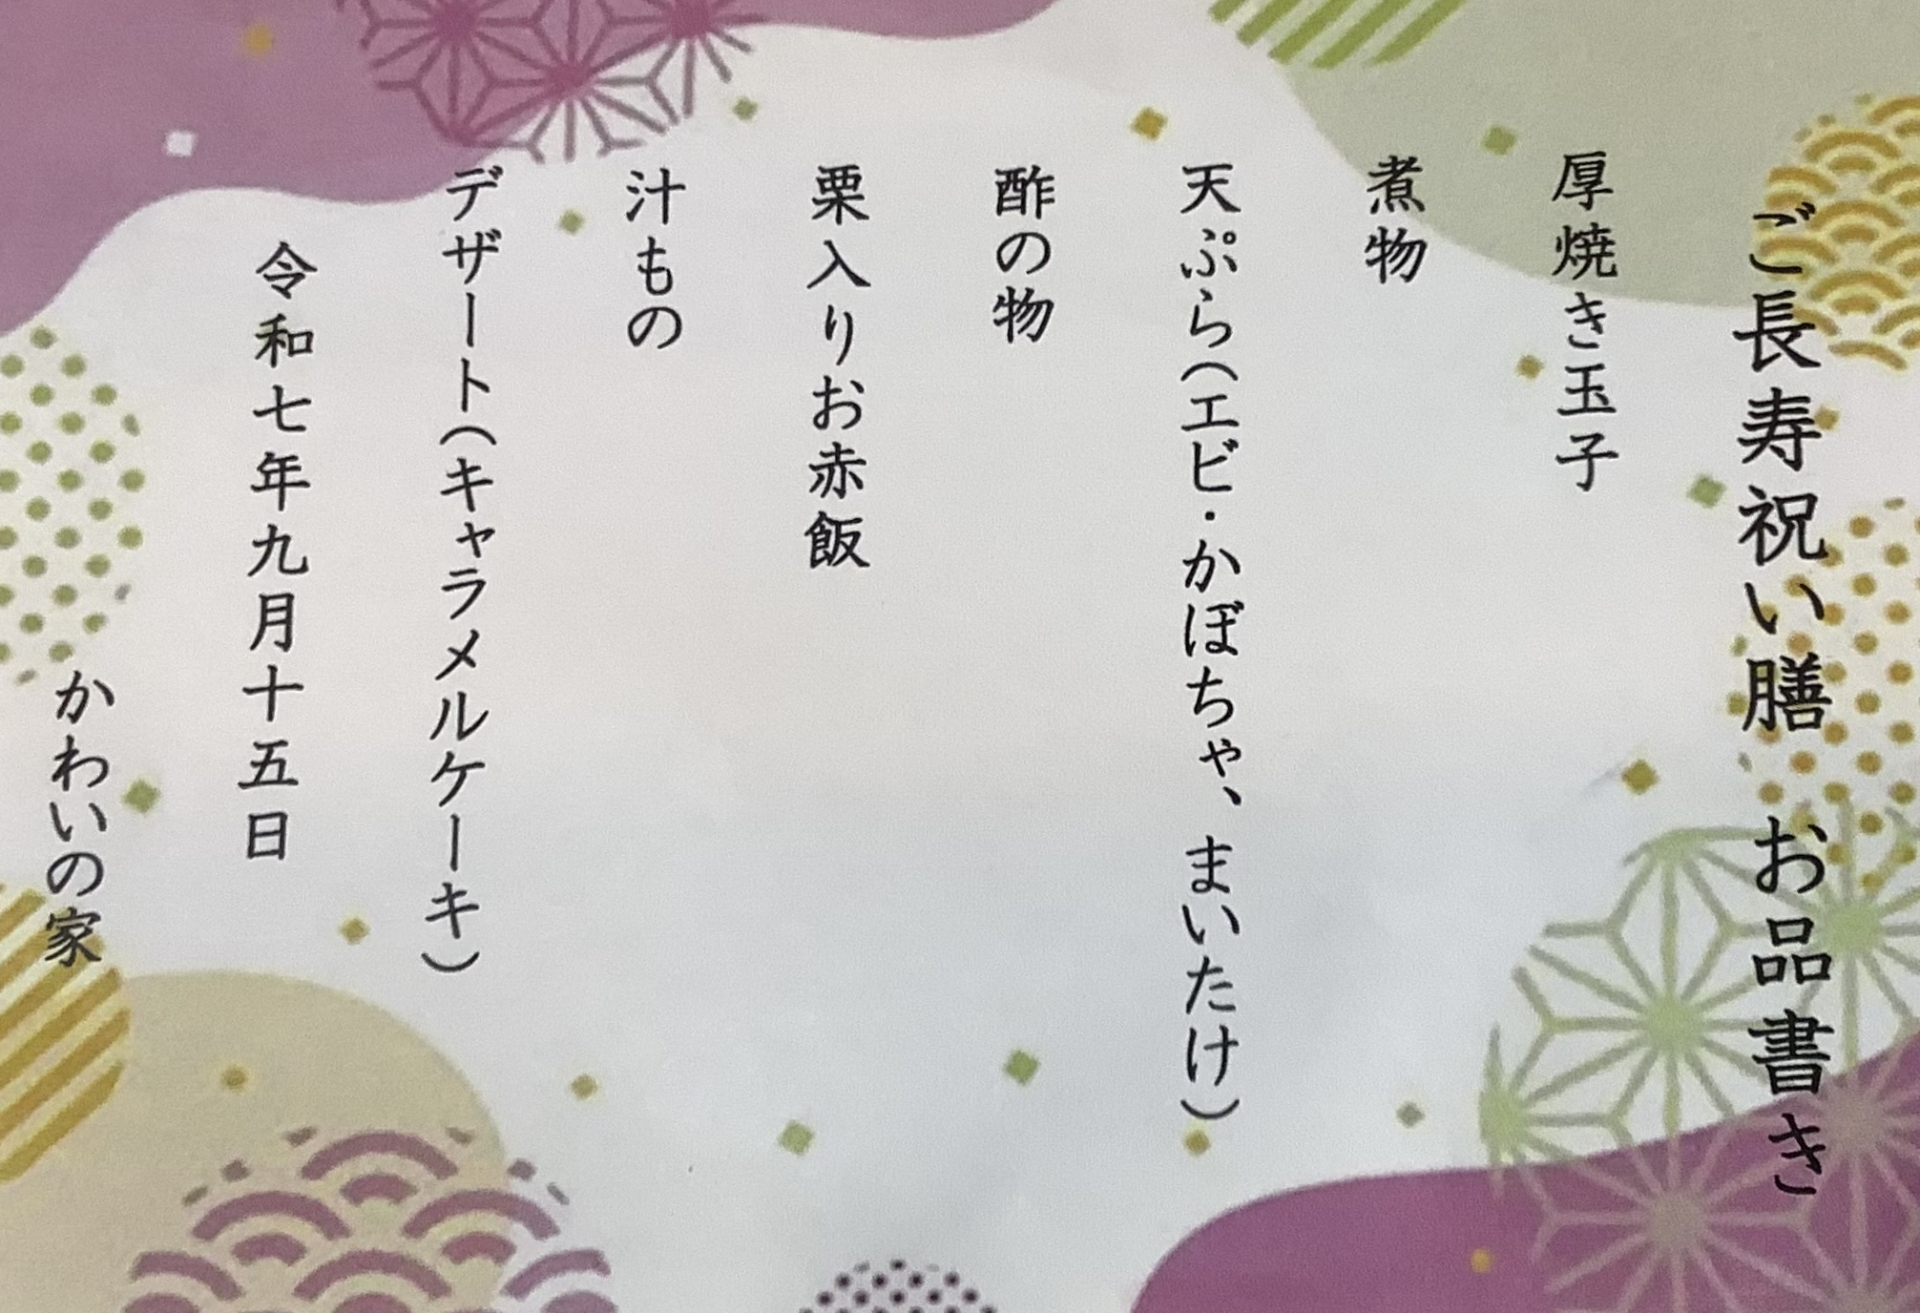 ご長寿祝い膳　お品書き
厚焼き玉子
煮物
天ぷら(エビ・かぼちゃ、まいたけ)
酢の物
栗入りお赤飯
汁もの
デザート(キャラメルケーキ)
令和七年九月十五日
かわいの家